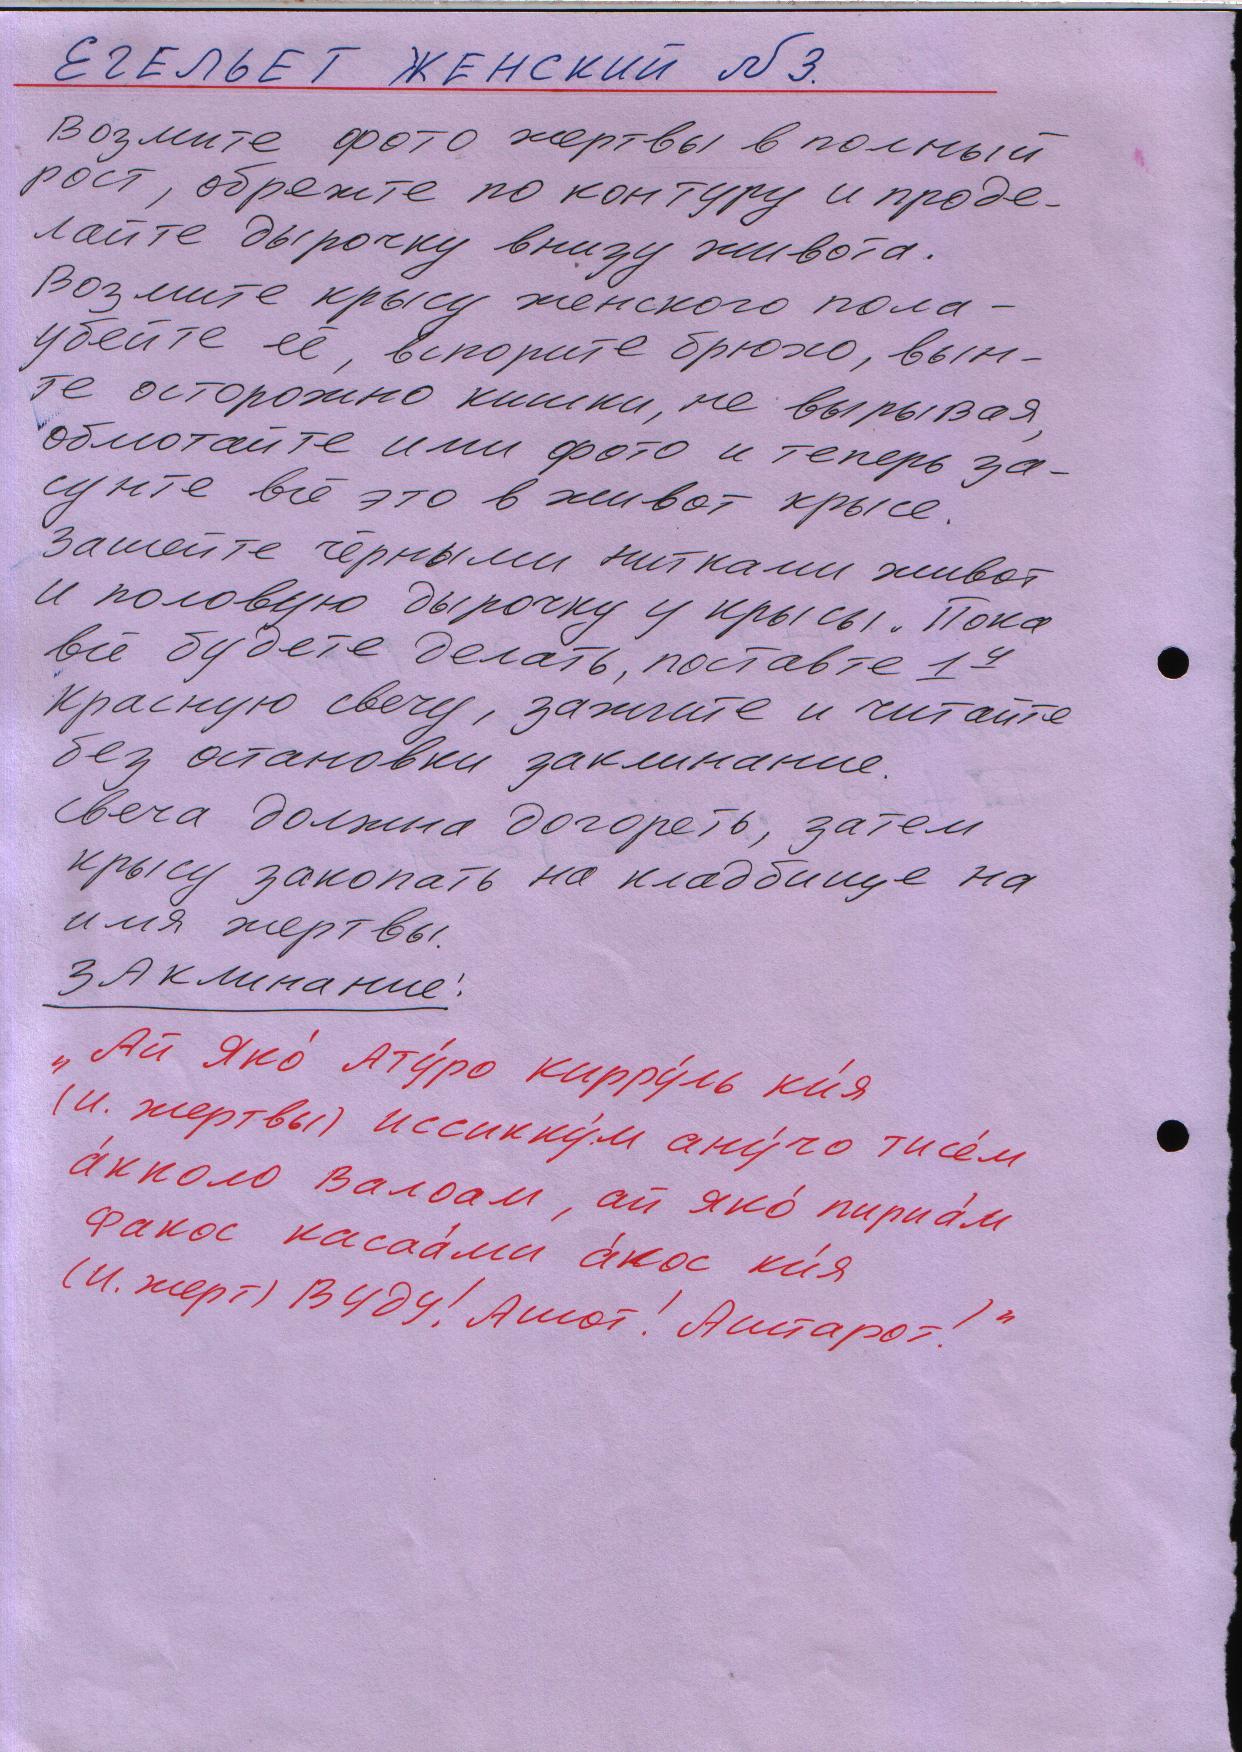 ЕГЕЛЬЕТ ЖЕНСКИЙ №3.
Возмите фото жертвы в полный
рост, обрежте по контуру и проде-
лайте дырочку внизу живота.
Возмите крысу женского пола -
убейте её, вспорите брюхо, вын-
те осторожно кишки, не вырывая,
обмотайте ими фото и теперь за-
сунте всё это в живот крысе.
Зашейте чёрными нитками живот
и половую дырочку у крысы. Пока
всё будете делать, поставте 1у
красную свечу, зажгите и читайте
без остановки заклинание.
Свеча должна догореть, затем
крысу закопать на кладбище на
имя жертвы.
ЗАклинание:
„Ай Яко́ Ату́ро кирру́ль ки́я
(и. жертвы) иссикку́м ану́чо тисе́м
а́кколо Валоам, ай яко́ пириа́м
Факос касаа́ми а́кос ки́я
(и. жерт) Вуду! Ашот! Аштарот!"